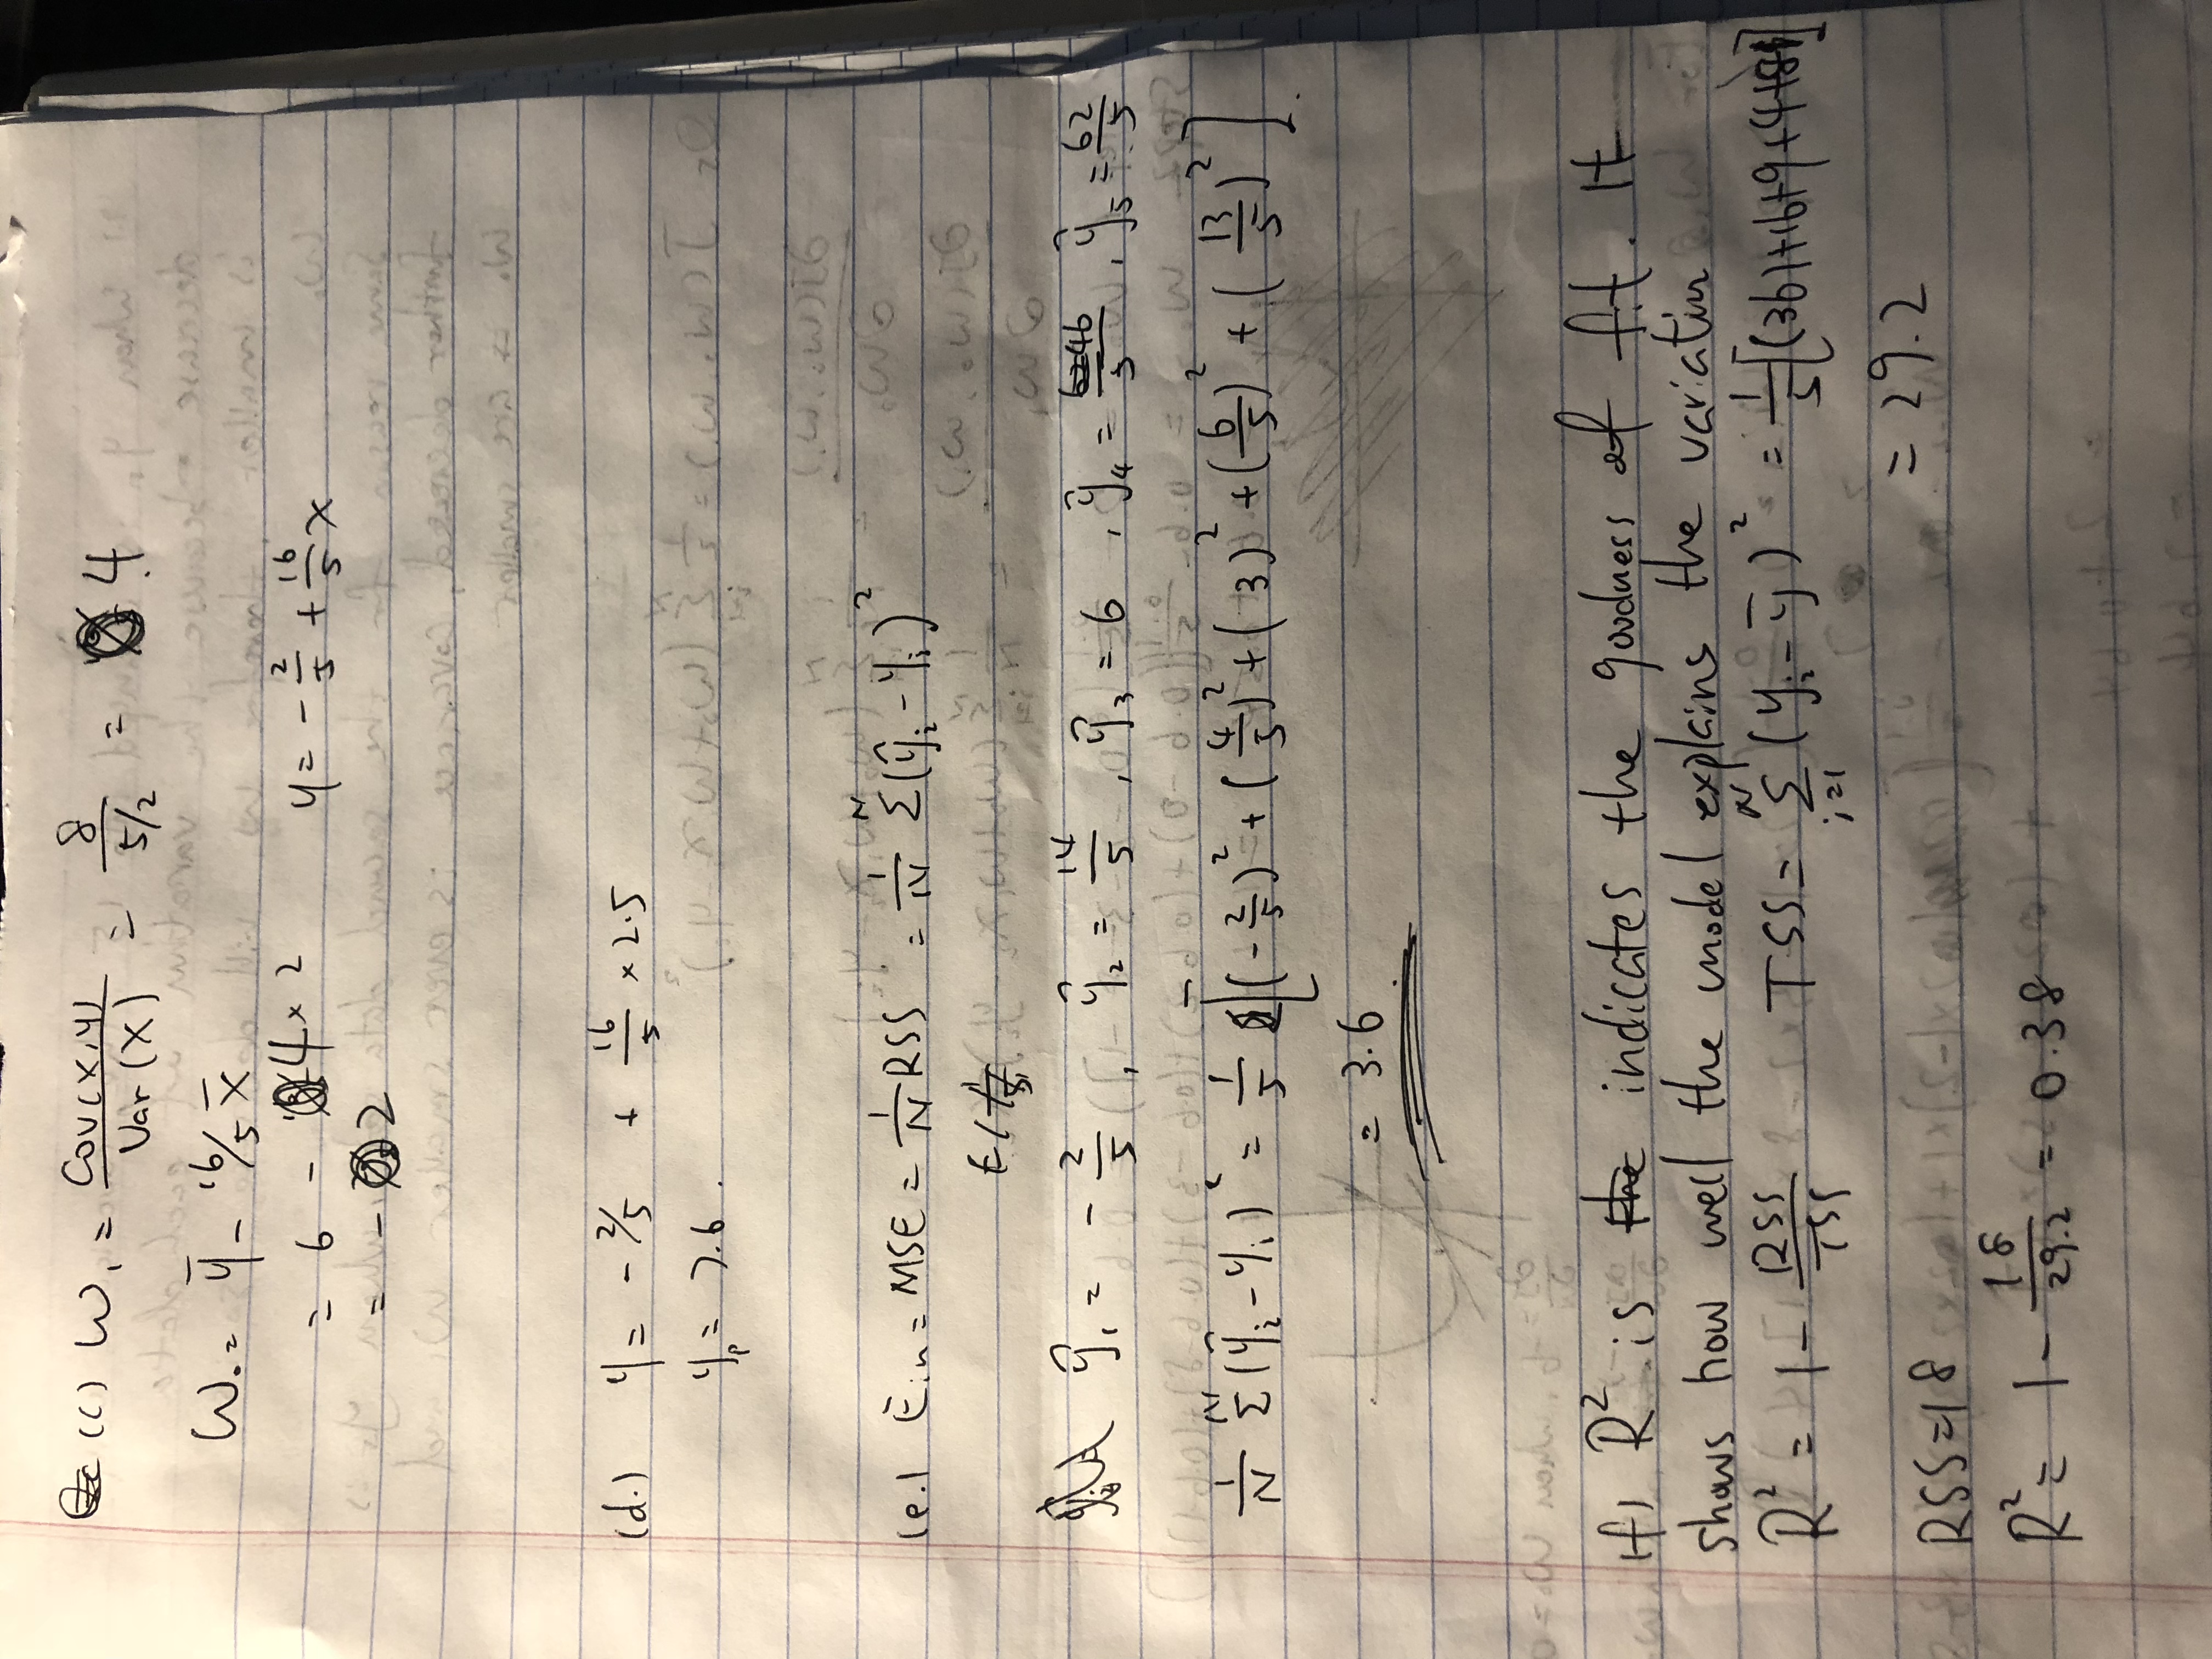 (c) W₁ = Cov(x,y) / Var(X) = 8 / 5/2 = 4
W₀ = ȳ - 16/5 x̄
= 6 - 4 × 2    y = - 2/5 + 16/5 x
= - 2
(d.) y = - 2/5 + 16/5 × 2.5
yₚ = 7.6.
(e.) Ein = MSE = 1/N RSS = 1/N Σᴺ(ŷᵢ - yᵢ)²
ŷ₁ = - 2/5, ŷ₂ = 14/5, ŷ₃ = 6, ŷ₄ = 46/5, ŷ₅ = 62/5
1/N Σᴺ(ŷᵢ - yᵢ)² = 1/5 [(-2/5)² + (4/5)² + (3)² + (6/5)² + (13/5)²].
= 3.6.
(f) R² is the indicates the goodness of fit. It
shows how well the model explains the variation
R² = 1 - RSS/TSS    TSS = Σᴺᵢ₌₁ (yᵢ - ȳ)² = 1/5[(36)+16+9+4+81]
= 29.2
RSS=18
R² = 1 - 18/29.2 = 0.38